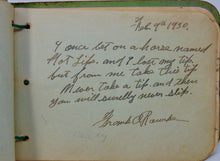 Feb. 9th 1930.
I once bet on a horse named
Hot Lips. and I lost my tip
but from me take this tip
Never take a tip. and then
you will surelly never slip.
Frank O'Rourke